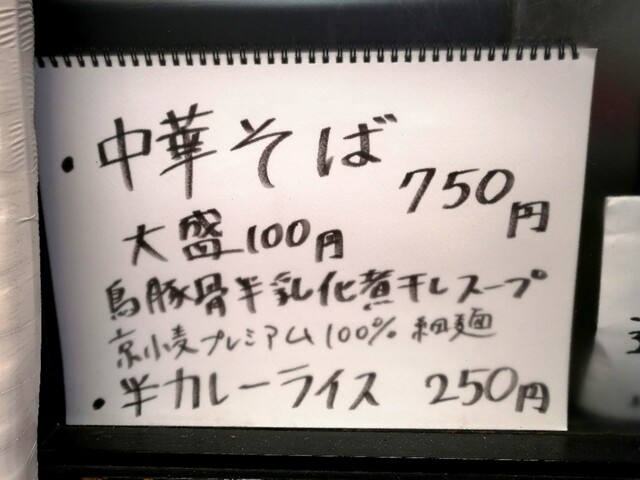 ・中華そば 750円
大盛100円
鳥豚骨半乳化煮干しスープ
京小麦プレミアム100% 細麺
・半カレーライス 250円